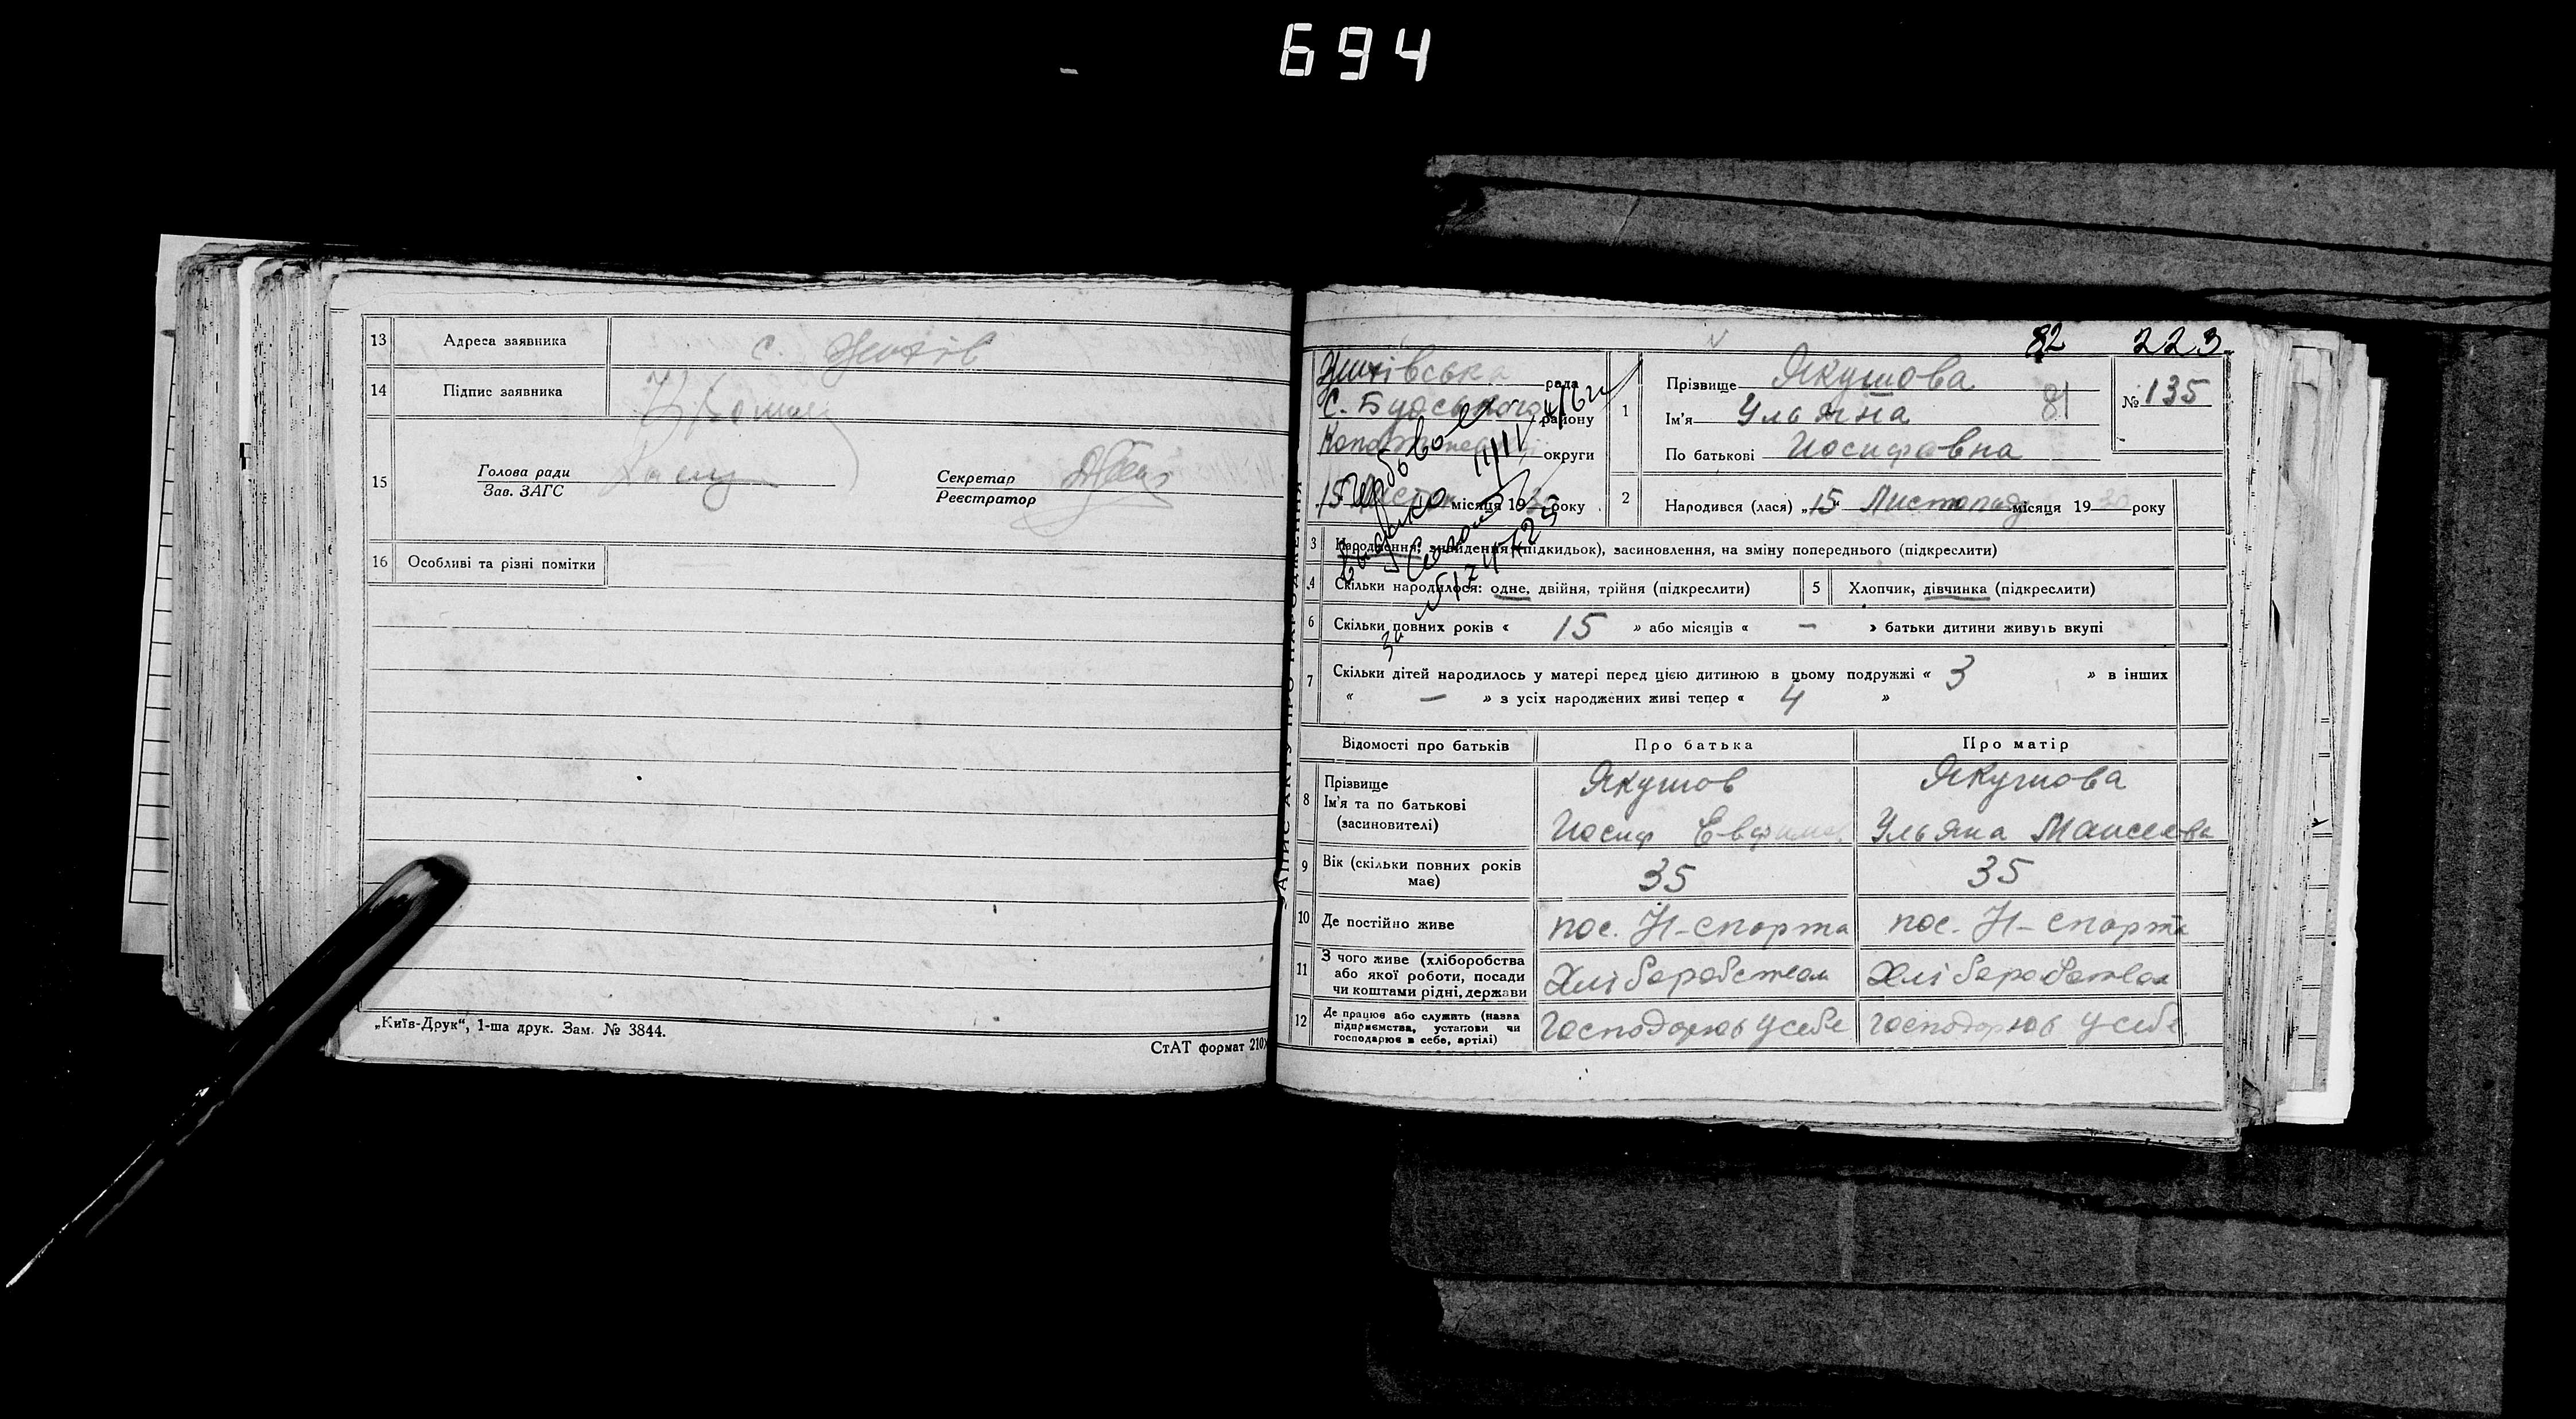 694
13 Адреса заявника с.
14 Підпис заявника
15 Голова ради
Зав. ЗАГС
Секретар
Реєстратор
16 Особливі та різні помітки
„Київ-Друк“, 1-ша друк. Зам. № 3844.
СтАТ формат 210
82 223
рада
С. Будського району
округи
15 місяця 19 року
ЗАПИС АКТУ ПРО НАРОДЖЕННЯ
1 Прізвище Якушова
Ім'я Ульяна 81
По батькові Иосифовна
№ 135
2 Народився (лася) „15 Листопаду місяця 1930 року
3 Народження, знайдення (підкидьок), засиновлення, на зміну попереднього (підкреслити)
4 Скільки народилося: одне, двійня, трійня (підкреслити)
5 Хлопчик, дівчинка (підкреслити)
6 Скільки повних років « 15 » або місяців « – » батьки дитини живуть вкупі
7 Скільки дітей народилось у матері перед цією дитиною в цьому подружжі « 3 » в інших
« – » з усіх народжених живі тепер « 4 »
Відомості про батьків Про батька Про матір
8 Прізвище Якушов Якушова
Ім'я та по батькові
(засиновителі) Иосиф Ульяна Моисеева
9 Вік (скільки повних років
має) 35 35
10 Де постійно живе пос. Н-спорта пос. Н-спорта
11 З чого живе (хліборобства
або якої роботи, посади
чи коштами рідні, держави Хліборобством Хліборобством
12 Де працює або служить (назва
підприємства, установи чи
господарює в себе, артілі) Господорюв у себе господорюв у себе